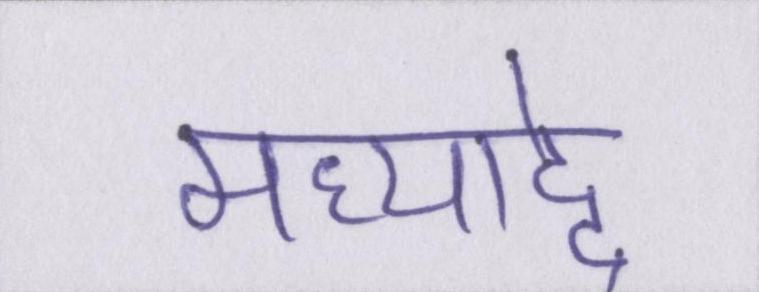 मध्याद्दे